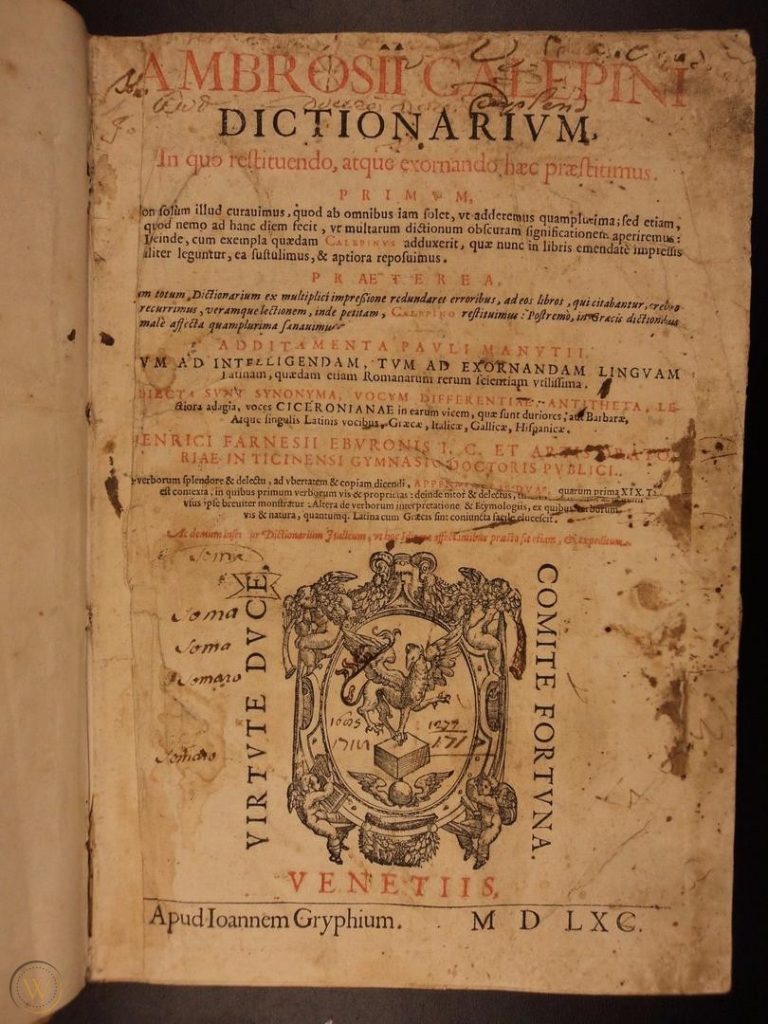 AMBROSII CALEPINI
DICTIONARIVM,
In quo restituendo, atque exornando hæc præstitimus.
PRIMVM,
on solùm illud curauimus, quod ab omnibus iam solet, vt adderemus quamplurima; sed etiam,
quod nemo ad hanc diem fecit, vt multarum dictionum obscuram significationem aperiremus:
Deinde, cum exempla quædam CALEPINVS adduxerit, quæ nunc in libris emendatè impressis
aliter leguntur, ea sustulimus, & aptiora reposuimus.
PRAETEREA,
m totum Dictionarium ex multiplici impressione redundaret erroribus, ad eos libros, qui citabantur,
recurrimus, veramque lectionem, inde petitam, CALEPINO restituimus: Postremò, in Græcis dictionibus
malè affecta quamplurima sanauimus
ADDITAMENTA PAVLI MANVTII,
VM AD INTELLIGENDAM, TVM AD EXORNANDAM LINGVAM
Latinam, quædam etiam Romanarum rerum scientiam vtilissima.
DIECTA SVNT SYNONYMA, VOCVM DIFFERENTIAE, ANTITHETA, LE-
ctiora adagia, voces CICERONIANAE in earum vicem, quæ sunt duriores, aut Barbaræ,
Atque singulis Latinis vocibus, Græcæ, Italicæ, Gallicæ, Hispanicæ.
ENRICI FARNESII EBVRONIS I. C. ET
RIAE IN TICINENSI GYMNASIO DOCTORIS PVBLICI,
verborum splendore & delectu, ad vbertatem & copiam dicendi, quarum prima XIX.
est contexta, in quibus primum verborum vis & proprietas: deinde nitor & delectus,
vsus ipse breuiter monstratur: Altera de verborum interpretatione & Etymologiis, ex quibus verborum
vis & natura, quantumq. Latina cum Græcis sint coniuncta facile elucescit.
Ac demum Dictionarium Italicum, vt hoc præsto sit etiam, & expeditum.
Soma
Soma
Soma
Somaro
Somaro
VIRTVTE DVCE,
COMITE FORTVNA.
1277
VENETIIS,
Apud Ioannem Gryphium. M D LXC.
W